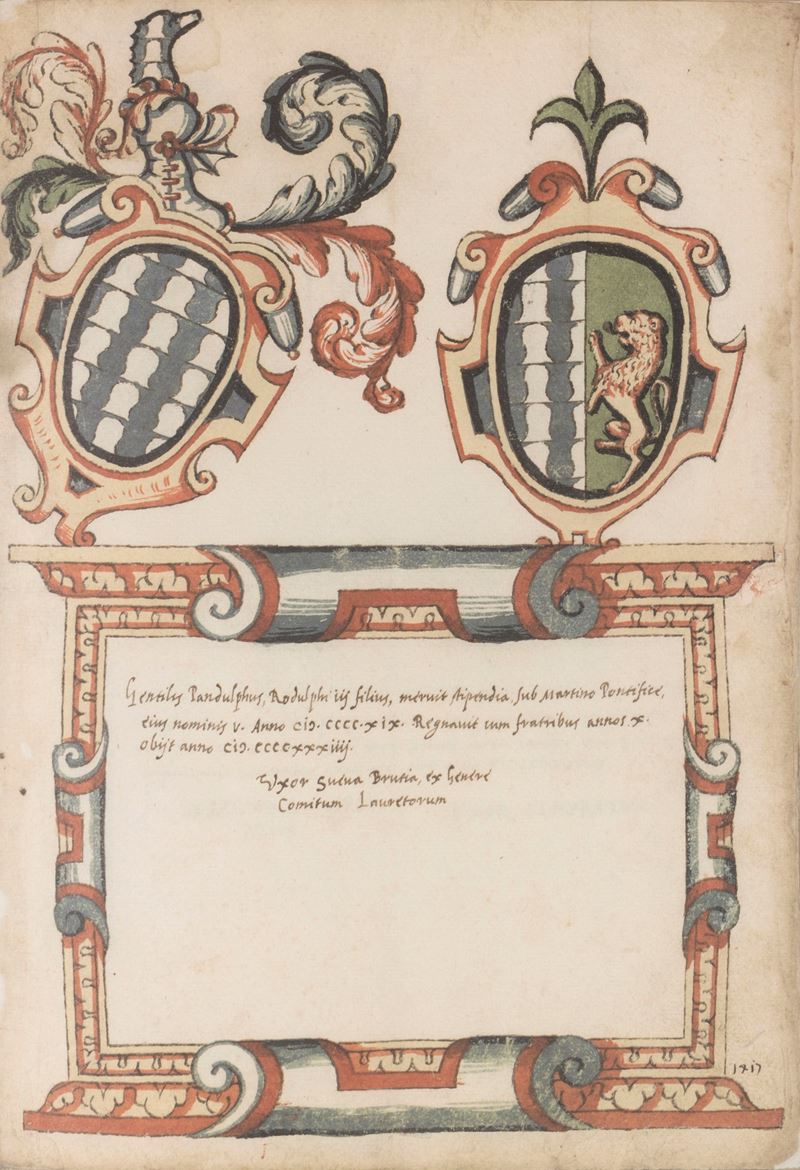 Gentilis Pandulphus, Rodulphi iij filius, meruit stipendia, sub Martino Pontifice,
eius nominis v. Anno cIɔ. cccc.xix. Regnavit cum fratribus annos .x.
obijt anno cIɔ. ccccxxxiiij.
Vxor Sueva Brutia, ex Genere
Comitum Lauretorum